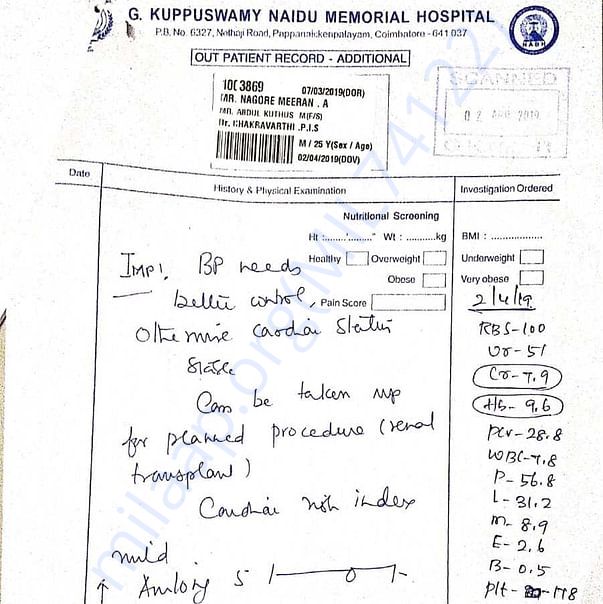 G. KUPPUSWAMY NAIDU MEMORIAL HOSPITAL
P.B. No. 6327, Nethaji Road, Pappanaickenpalayam, Coimbatore - 641 037
NABH
OUT PATIENT RECORD - ADDITIONAL
1003869 07/03/2019(DOR)
MR. NAGORE MEERAN . A
MR. ABDUL KUTHUS M(F/S)
Dr. CHAKRAVARTHI .P.I.S
M / 25 Y(Sex / Age)
02/04/2019(DOV)
SCANNED
02 APR 2019
Date
History & Physical Examination
Investigation Ordered
Nutritional Screening
Ht :......'......" Wt : ..........kg BMI : ..................
Healthy Overweight Underweight
Obese Very obese
Pain Score
Imp! BP needs
better control,
Otherwise cardiac status
stable
Can be taken up
for planned procedure (renal
transplant)
Cardiac risk index
mild.
↑ Amlong 5 1-0-1-
2/4/19
RBS-100
Ur-51
Cr-7.9
Hb-9.6
PCV-28.8
WBC-7.8
P-56.8
L-31.2
M-8.9
E-2.6
B-0.5
Plt-178
milaap.org(MIL741221